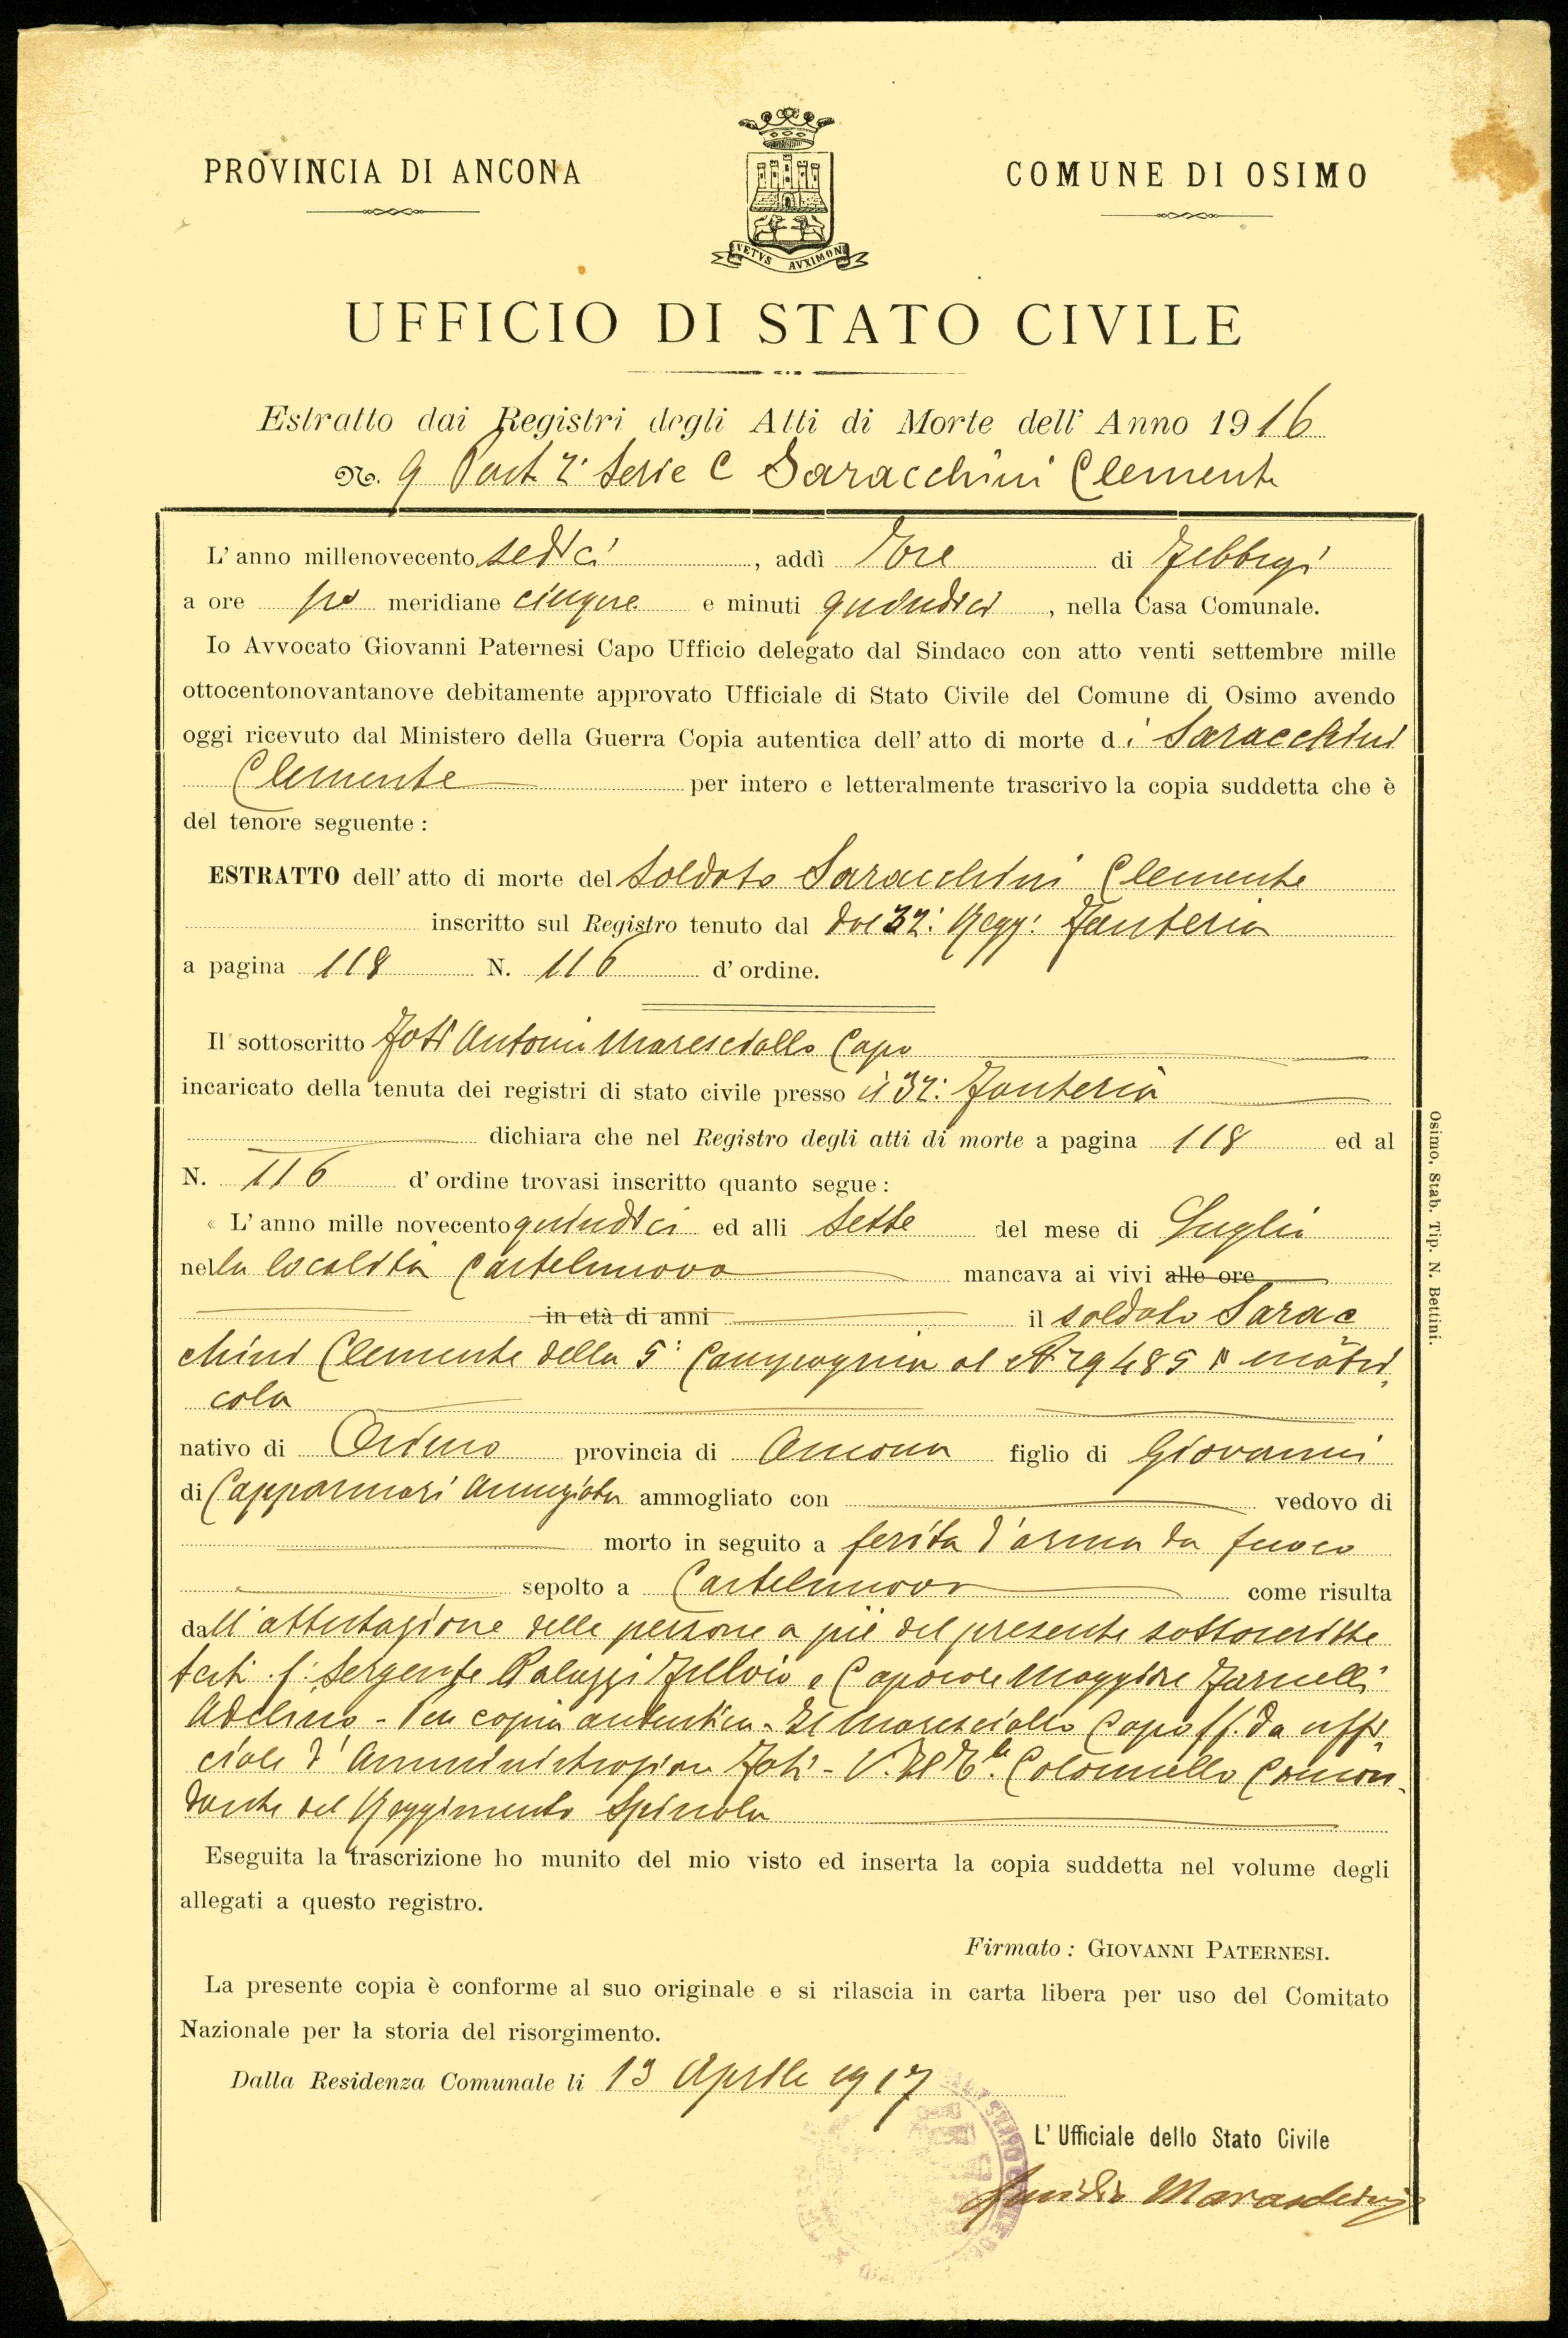 PROVINCIA DI ANCONA
COMUNE DI OSIMO
VETVS AVXIMON
UFFICIO DI STATO CIVILE
Estratto dai Registri degli Atti di Morte dell' Anno 1916
N. 9 Part 2ª Serie C Saracchini Clemente
L' anno millenovecento sedici, addì Tre di Febbrajo
a ore po meridiane cinque e minuti quindici, nella Casa Comunale.
Io Avvocato Giovanni Paternesi Capo Ufficio delegato dal Sindaco con atto venti settembre mille
ottocentonovantanove debitamente approvato Ufficiale di Stato Civile del Comune di Osimo avendo
oggi ricevuto dal Ministero della Guerra Copia autentica dell' atto di morte di Saracchini
Clemente per intero e letteralmente trascrivo la copia suddetta che è
del tenore seguente :
ESTRATTO dell' atto di morte del Soldato Saracchini Clemente
inscritto sul Registro tenuto dal dal 32: Regg: Fanteria
a pagina 118 N. 116 d' ordine.
Il sottoscritto Foti Antonio Maresciallo Capo
incaricato della tenuta dei registri di stato civile presso il 32: Fanteria
dichiara che nel Registro degli atti di morte a pagina 118 ed al
N. 116 d' ordine trovasi inscritto quanto segue :
« L' anno mille novecento quindici ed alli Sette del mese di Luglio
nella località Castelnuovo mancava ai vivi alle ore
in età di anni il soldato Sarac
chini Clemente della 5ª Compagnia al N 29485 di matri
cola
nativo di Osimo provincia di Ancona figlio di Giovanni
di Capparucci Annunziata ammogliato con vedovo di
morto in seguito a ferita d'arma da fuoco
sepolto a Castelnuovo come risulta
dall'attestazione delle persone a piè del presente sottoscritte
testi f: Sergente Paluzzi Fulvio e Caporale Maggiore Farnelli
Adelino - Per copia autentica - Il Maresciallo Capo ff. da uffi
ciale d'Amministrazione Foti - V. Il T. Colonnello Coman
dante del Reggimento Spinola
Eseguita la trascrizione ho munito del mio visto ed inserta la copia suddetta nel volume degli
allegati a questo registro.
Firmato : GIOVANNI PATERNESI.
La presente copia è conforme al suo originale e si rilascia in carta libera per uso del Comitato
Nazionale per la storia del risorgimento.
Dalla Residenza Comunale li 13 Aprile 1917
L' Ufficiale dello Stato Civile
Osimo, Stab. Tip. N. Bettini.